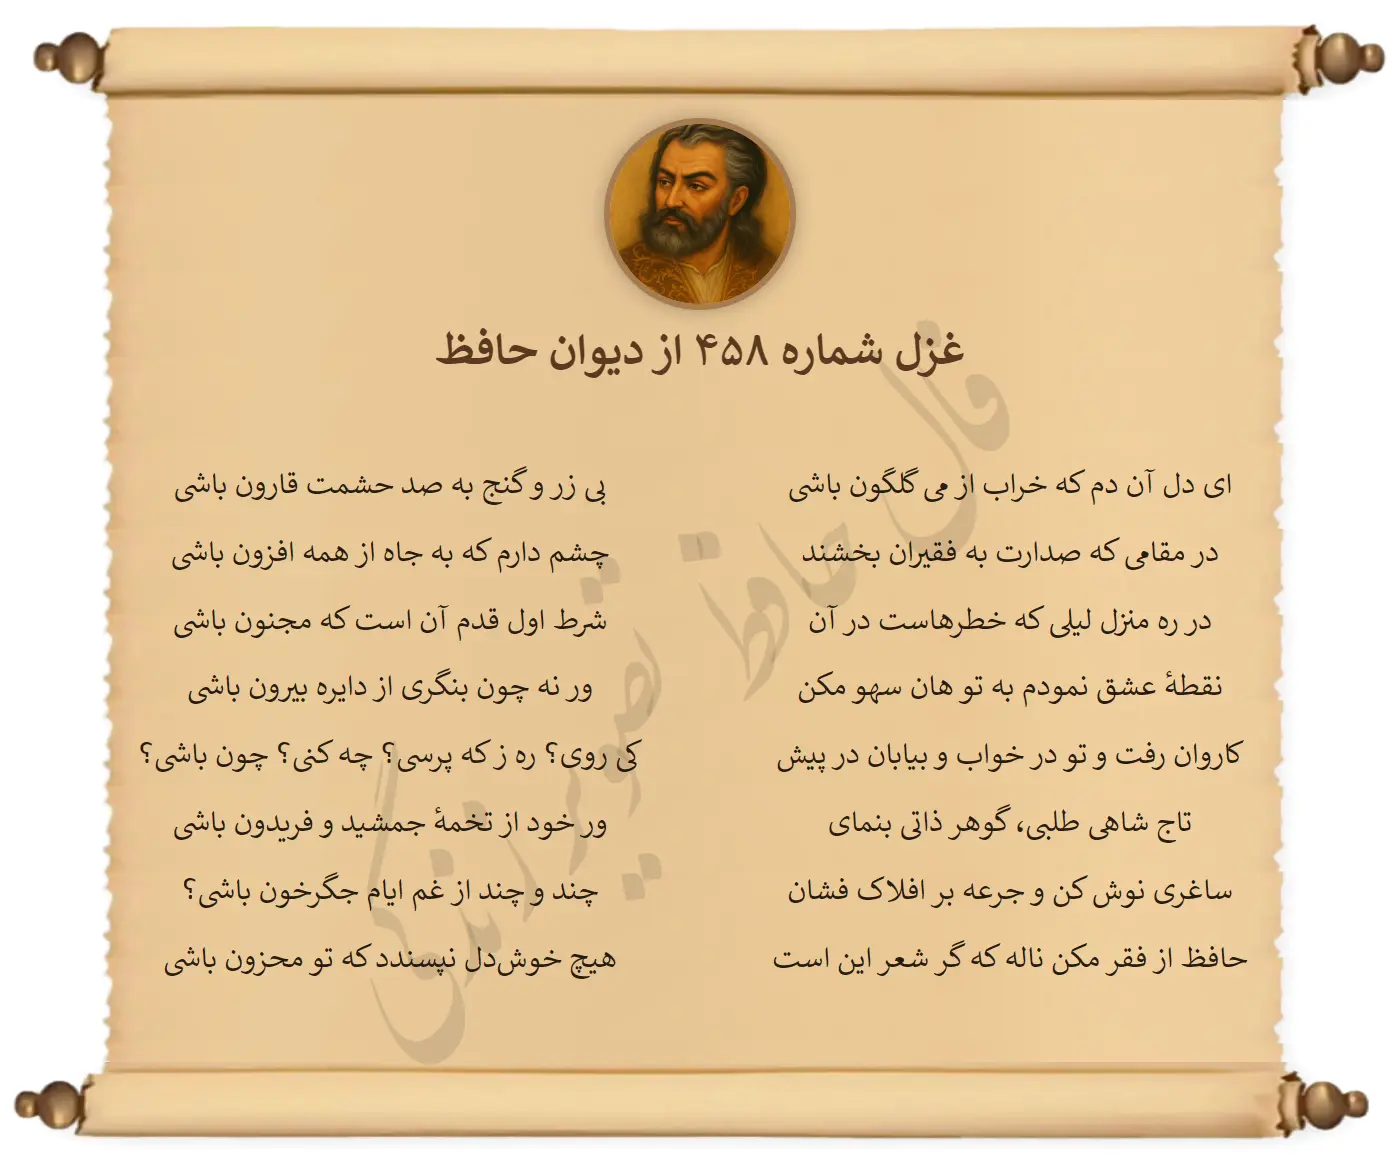 غزل شماره ۴۵۸ از دیوان حافظ
ای دل آن دم که خراب از می گلگون باشی
بی زر و گنج به صد حشمت قارون باشی
در مقامی که صدارت به فقیران بخشند
چشم دارم که به جاه از همه افزون باشی
در ره منزل لیلی که خطرهاست در آن
شرط اول قدم آن است که مجنون باشی
نقطهٔ عشق نمودم به تو هان سهو مکن
ور نه چون بنگری از دایره بیرون باشی
کاروان رفت و تو در خواب و بیابان در پیش
کی روی؟ ره ز که پرسی؟ چه کنی؟ چون باشی؟
تاج شاهی طلبی، گوهر ذاتی بنمای
ور خود از تخمهٔ جمشید و فریدون باشی
ساغری نوش کن و جرعه بر افلاک فشان
چند و چند از غم ایام جگرخون باشی؟
حافظ از فقر مکن ناله که گر شعر این است
هیچ خوش‌دل نپسندد که تو محزون باشی
فال حافظ تصویر زندگی